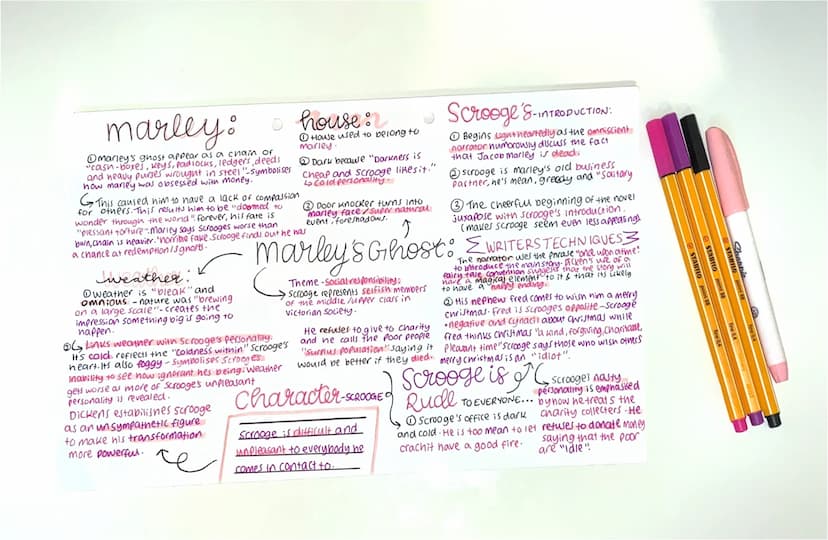 marley:
①marley's ghost appear as a chain of
"cash-boxes, keys, padlocks, ledgers, deeds
and heavy purses wrought in steel"-symbolises
how marley was obsessed with money.
This caused him to have a lack of compassion
for others. This results him to be "doomed to
wonder through the world". forever, his fate is
marley says scrooges worse than
him, chain is heavier. "horrible fate. Scrooge finds out he has
a chance at redemption/
house:
① House used to belong to
marley.
② Dark because "Darkness is
cheap and scrooge likes it."
Cold personality.
③ Door knocker turns into
marley face/super natural
event, foreshadows.
Scrooge's-INTRODUCTION:
① Begins lightheartedly as the omniscient
narrator humorously discuss the fact
that Jacob marley is dead.
② Scrooge is marley's old business
partner, he's mean, greedy and "solitary
③ The cheerful beginning of the novel
juxapose with scrooge's introduction.
(makes scrooge seem even less appealing)
Marley's Ghost:
WRITERS TECHNIQUES
The narrator uses the phrase "once upon a time"
to introduce the main story. Dickens use of a
fairy tale convention suggests that the story will
have a magical element to it & that is likely
to have a "happy ending".
② His nephew fred comes to wish him a merry
christmas. fred is scrooges opposite - Scrooge
negative and cynical about christmas while
fred thinks christmas "a kind, forgiving, charitable,
pleasant time" scrooge says those who wish others
merry christmas is an "idiot".
weather:
① weather is "bleak" and
ominous - nature was "brewing
on a large scale"- creates the
impression something big is going to
happen.
② Links weather with scrooge's personality.
It's cold, reflects the "coldness within" scrooge's
heart. It's also foggy - symbolises scrooges
inability to see how ignorant his being. Weather
gets worse as more of scrooge's unpleasant
personality is revealed.
Dickens establishes scrooge
as an unsympathetic figure
to make his transformation
more powerful.
Theme - social responsibility.
Scrooge represents selfish members
of the middle/upper class in
victorian society.
He refuses to give to charity
and he calls the poor people
"surplus population" saying it
would be better if they died.
Character-SCROOGE
scrooge is difficult and
unpleasant to everybody he
comes in contact to.
Scrooge is
Rude TO EVERYONE...
① Scrooge's office is dark
and cold. He is too mean to let
crachit have a good fire.
scrooge's nasty
personality is emphasised
by how he treats the
charity collecters. He
refuses to donate money
saying that the poor
are "idle".
STABILO
STABILO
STABILO
Sharpie